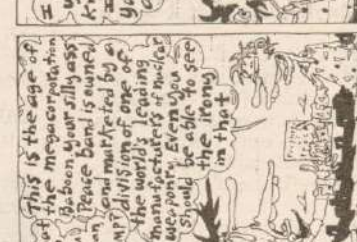 This is the age of
the megacorporation
Baboon, your silly ass
Peace band is owned
and marketed by a
division of one of
the world's leading
manufacturers of nuclear
weaponry. Even you
should be able to see
the irony
in that